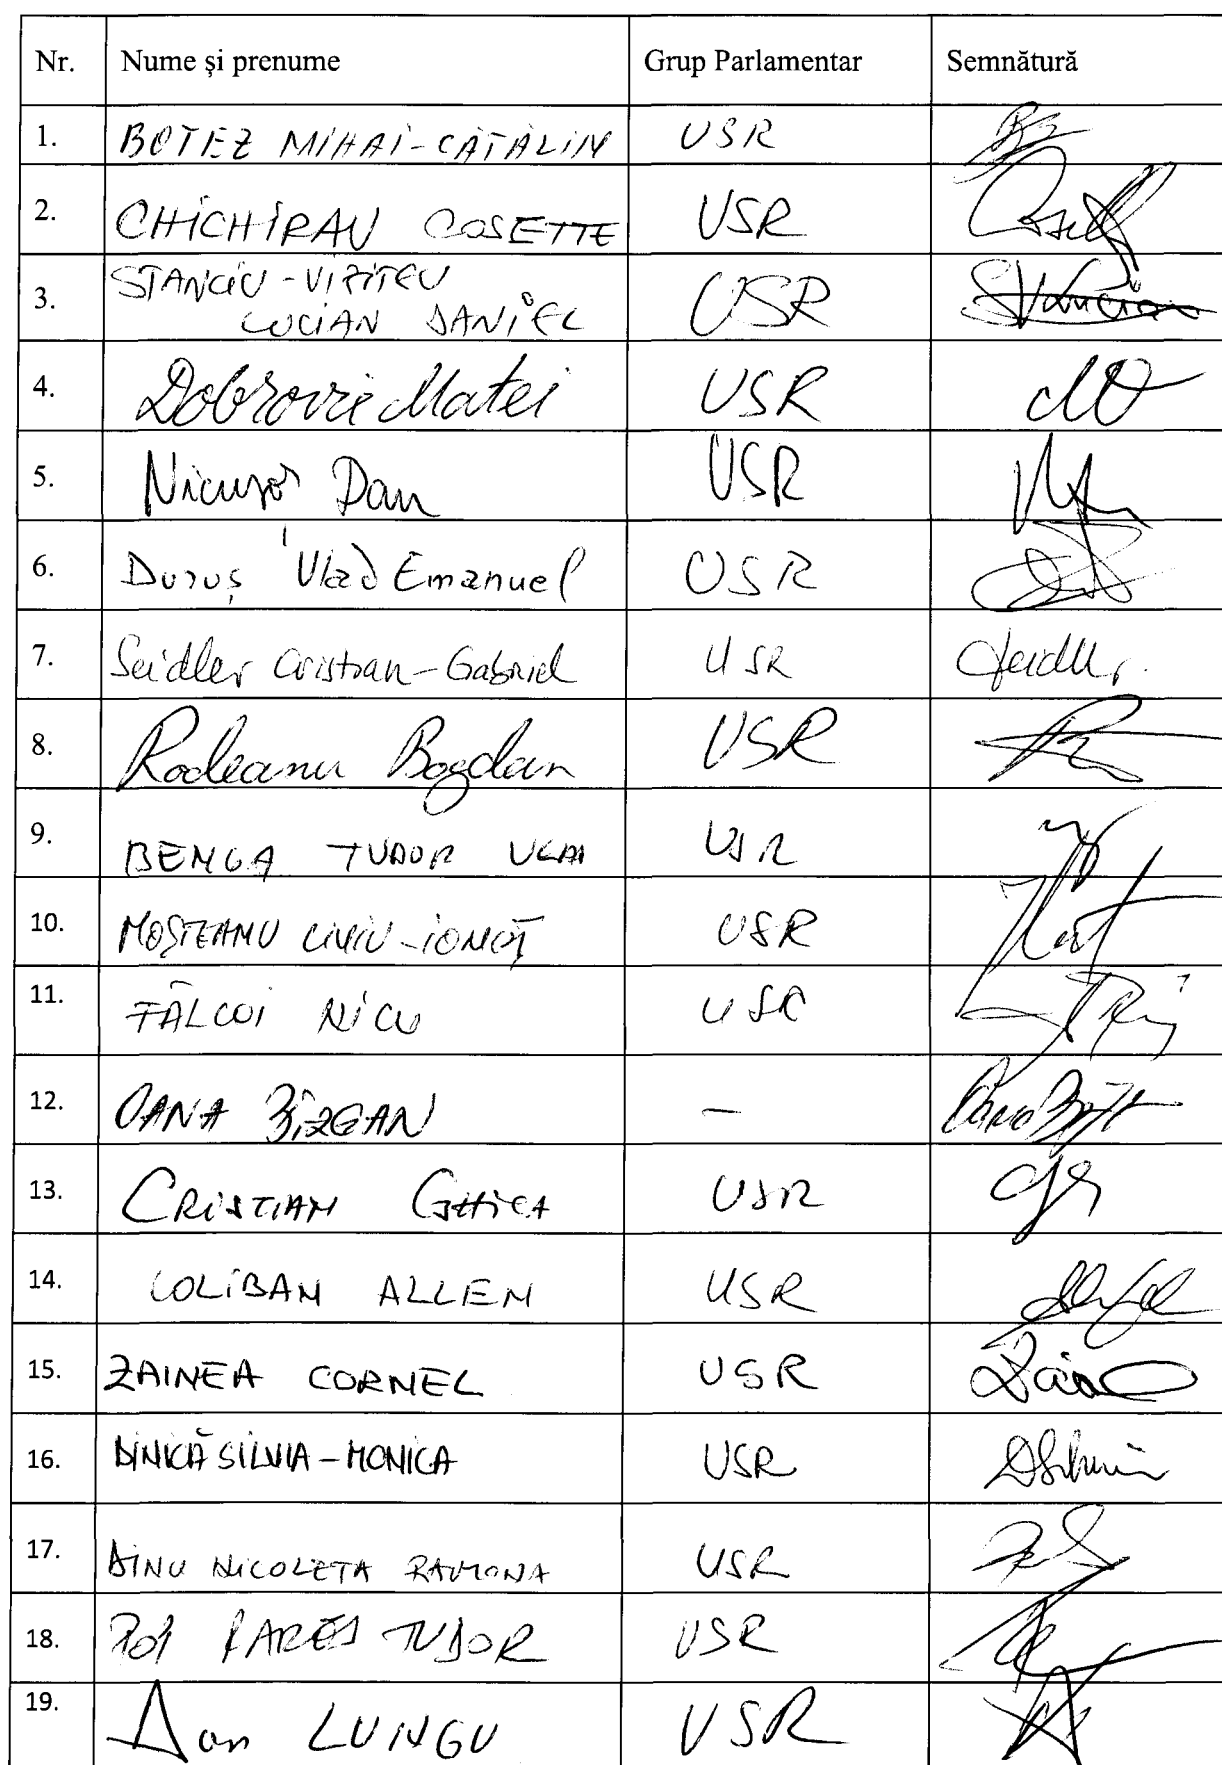 Nr. Nume și prenume Grup Parlamentar Semnătură
1. BOTEZ MIHAI-CĂTĂLIN USR
2. CHICHIRĂU COSETTE USR
3. STANCIU-VIZITEU
LUCIAN DANIEL USR
4. Dobrovie Matei USR
5. Nicușor Dan USR
6. Duruș Vlad Emanuel USR
7. Seidler Cristian-Gabriel USR Seidler
8. Rodeanu Bogdan USR
9. BENGA TUDOR VLAD USR
10. MOȘTEANU LIVIU-IONUȚ USR
11. FĂLCOI NICU USR
12. OANA BÎZGAN –
13. CRISTIAN GHICA USR
14. COLIBAN ALLEN USR
15. ZAINEA CORNEL USR
16. DINICĂ SILVIA-MONICA USR
17. DINU NICOLETA RAMONA USR
18. POP RAREȘ TUDOR USR
19. Dan LUNGU USR